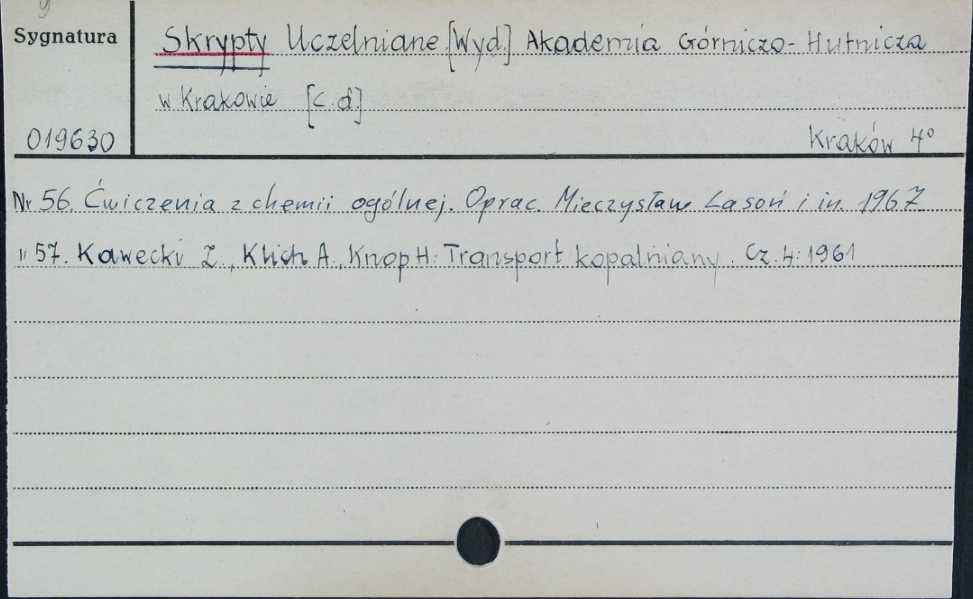 Sygnatura
Skrypty Uczelniane [Wyd.] Akademia Górniczo-Hutnicza
w Krakowie [c.d.]
019630
Kraków 4°
Nr 56. Ćwiczenia z chemii ogólnej. Oprac. Mieczysław Lasoń i in. 1967
" 57. Kawecki Z., Klich A., Knop H: Transport kopalniany. Cz. 4: 1961